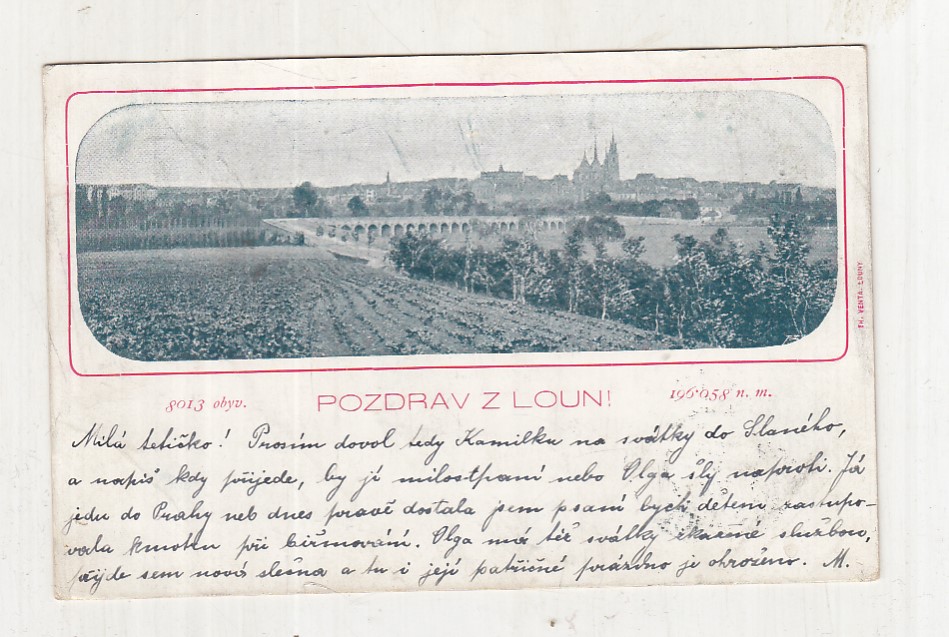 FR. VENTA, LOUNY
8013 obyv.
POZDRAV Z LOUN!
196·058 n. m.
Milá tetičko! Prosím dovol tedy Kamilku na svátky do Slaného,
a napiš kdy přijede, by jí milostpaní nebo Olga šly naproti. Já
jedu do Prahy neb dnes právě dostala jsem psaní bych dětem zastupo-
vala kmotru při biřmování. Olga má též svátky zkažené službou,
přijde sem nová slečna a tu i její patřičné prázdno je ohroženo. M.